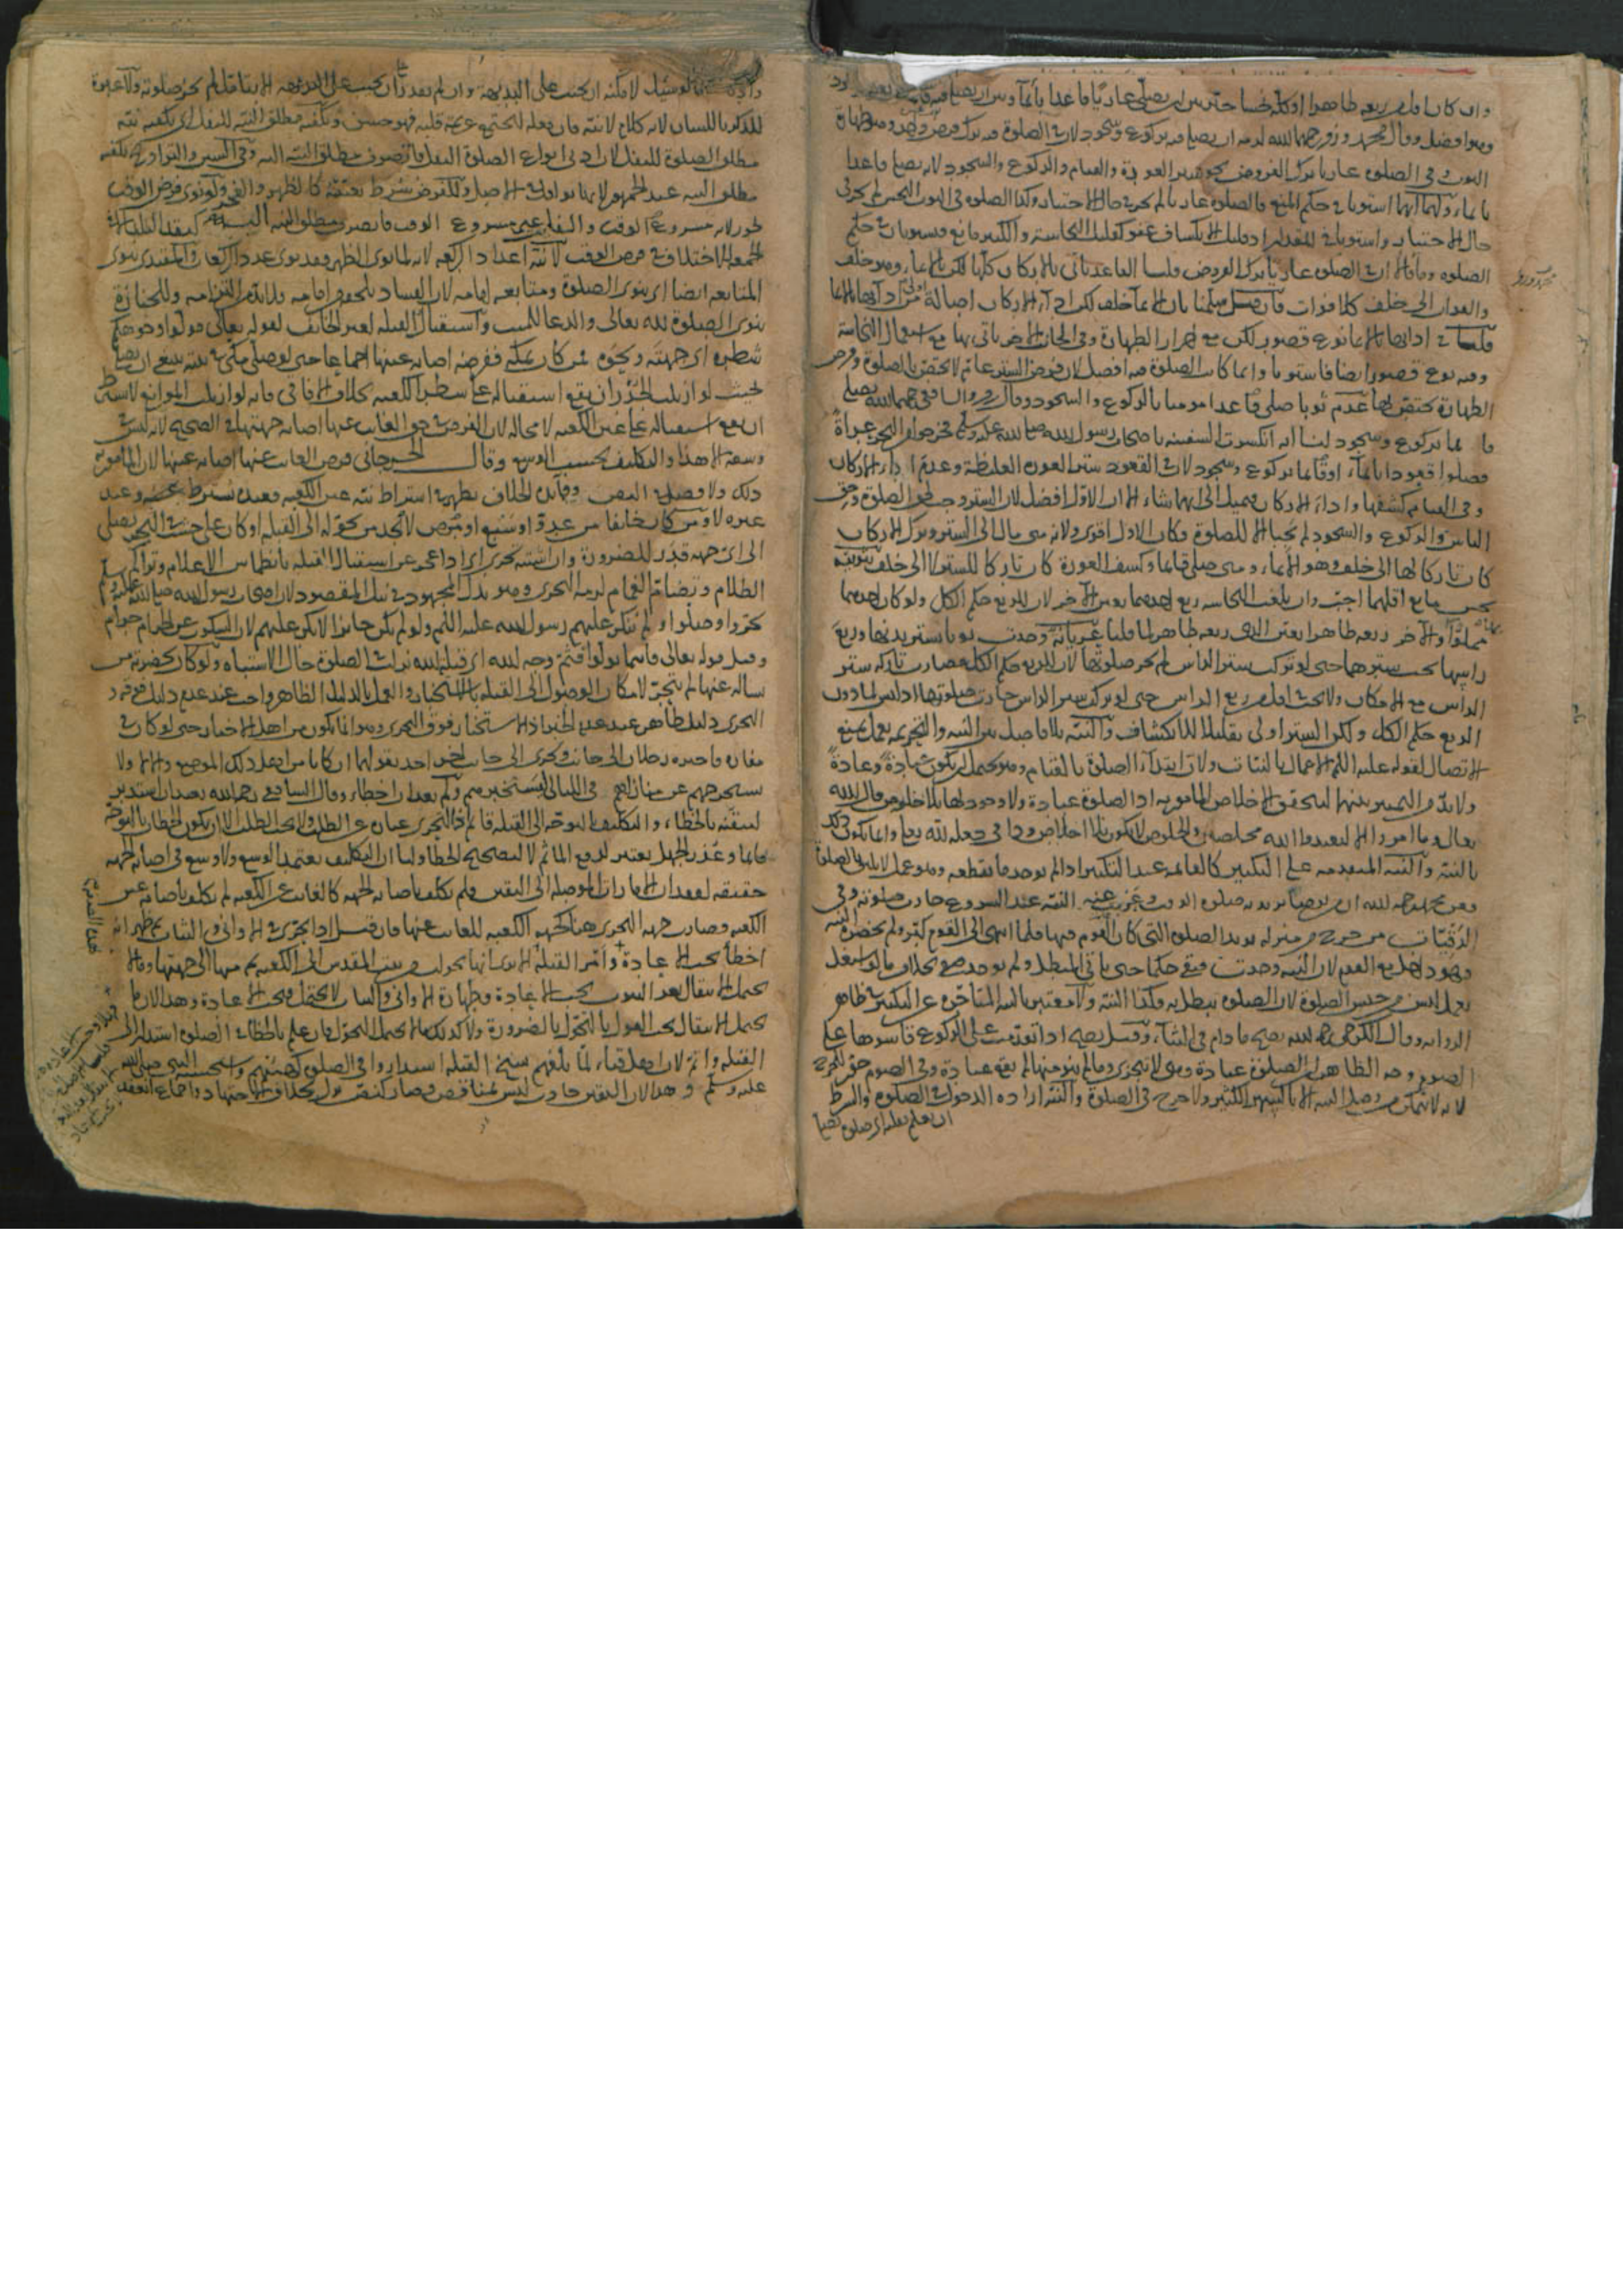 وان كان اقل من ربعه طاهرا او كله نجسا خير بين ان يصلي عاريا قاعدا بايماء وبين ان يصلي فيه
وهو افضل وقال محمد وزفر رحمهما الله لزمه ان يصلي فيه بركوع وسجود لان في الصلوة فيه ترك فرض واحد وهو طهارة
الثوب وفي الصلوة عاريا ترك الفروض نحو ستر العورة والقيام والركوع والسجود لانه يصلي قاعدا
بايماء ولهما انهما استويا في حكم المنع فالصلوة عاريا لم تجز حالة الاختيار وكذا الصلوة في الثوب النجس لم تجز في
حال الاختيار واستويا في المقدار اذ قليل الانكشاف عفو كقليل النجاسة والكثير مانع فيستويان في حكم
الصلوة وقالا ان في الصلوة عاريا ترك الفروض قلنا القاعد ياتي بالاركان كلها لكن بالايماء وهو خلف
والفوات الى خلف كلا فوات فان قيل سلمنا بان الايماء خلف لكن اداء الاركان اصالة اولى من ادائها بالايماء
قلنا في ادائها بالايماء نوع قصور لكن مع احراز الطهارة وفي الجانب الاخر ياتي بها مع استعمال النجاسة
وفيه نوع قصور ايضا فاستويا وانما كانت الصلوة فيه افضل لان فرض الستر عام لا يختص بالصلوة وفرض
الطهارة يختص بها عدم ثوبا صلى قاعدا موميا بالركوع والسجود وقال زفر والشافعي رحمهما الله يصلي
قائما بركوع وسجود لنا انه انكسرت السفينة باصحاب رسول الله صلى الله عليه وسلم فخرجوا من البحر عراة
فصلوا قعودا بايماء او قائما بركوع وسجود لان في القعود ستر العورة الغليظة وعدم اداء الاركان
وفي القيام كشفها واداء الاركان فيميل الى ايهما شاء الا ان الاول افضل لان الستر وجب لحق الصلوة وحق
الناس والركوع والسجود لم يجبا الا للصلوة فكان الاول اقوى ولانه متى مال الى الستر وترك الاركان
كان تاركا لها الى خلف وهو الايماء ومتى صلى قائما وكشف العورة كان تاركا للستر لا الى خلف
نجس مانع اقلهما احب وان بلغت النجاسة ربع احدهما تعين الاخر لان للربع حكم الكل ولو كان احدهما
مملوا والاخر ربعه طاهرا تعين الذي ربعه طاهر لما قلنا عريانة وجدت ثوبا يستر بدنها وربع
راسها يجب سترهما حتى لو تركت ستر الراس لم تجز صلوتها لان للربع حكم الكل فصارت تاركة ستر
الراس مع الامكان ولا يجب في اقل من ربع الراس حتى لو تركت ستر الراس جازت صلوتها اذ ليس لما دون
الربع حكم الكل ولكن الستر اولى تقليلا للانكشاف والنية بلا فاصل بين النية والتحريمة بعمل يمنع
الاتصال لقوله عليه السلم الاعمال بالنيات ولان ابتداء الصلوة بالقيام وهو يحتمل ان يكون عبادة وعادة
ولا بد من التمييز بينهما ليتحقق الاخلاص المامور به اذ الصلوة عبادة ولا وجود لها بلا اخلاص قال الله
تعالى وما امروا الا ليعبدوا الله مخلصين والخلوص لا يكون بلا اخلاص وذا في جعله لله تعالى وانما يكون ذلك
بالنية والنية المتقدمة على التكبير كالقائمة عند التكبير اذا لم يوجد ما يقطعه وهو عمل لا يليق بالصلوة
وعن محمد رحمه الله ان من توضا يريد به صلوة الوقت وعزبت عنه النية عند الشروع جازت صلوته وفي
الرقيات من خرج من منزله يريد الصلوة التي كان القوم فيها فلما انتهى الى القوم كبر ولم يحضره النية
فهو داخل مع القوم لان النية وجدت فبقي حكما حتى ياتي المبطل ولم يوجد بخلاف ما لو اشتغل
بعمل ليس من جنس الصلوة لان الصلوة تبطل به فكذا النية ولا معتبر بالنية المتاخرة عن التكبير في ظاهر
الرواية وقال الكرخي رحمه الله يصح ما دام في الثناء وقيل يصح اذا تقدمت على الركوع قاسوها على
الصوم وجه الظاهر ان الصلوة عبادة وهي لا تتجزى وما لم ينو منها لم يقع عبادة وفي الصوم جوز للحرج
لانه لا يتمكن من وصل النية الكثير ولا حرج في الصلوة والنية ارادة الدخول في الصلوة والشرط
ان يعلم بقلبه اي صلوة يصليها
لو سئل لامكنه ان يجيب على البديهة وان لم يقدر ان يجيب على البديهة الا بتامل لم تجز صلوته ولا عبرة
للذكر باللسان لانه كلام لا نية فان فعله ليجتمع عزيمة قلبه فهو حسن ويكفيه مطلق النية للنفل اي يكفيه نية
مطلق الصلوة للنفل لان ادنى انواع الصلوة النفل فانصرف مطلق النية اليه وفي السنن والتراويح يكفيه
مطلق النية عند الجمهور لانها نوافل في الاصل وللفرض شرط تعيينه كالظهر والفجر ولو نوى فرض الوقت
يجوز لانه مشروع الوقت والنفل غير مشروع الوقت فانصرف مطلق النية اليه كنقد البلد الا في
الجمعة للاختلاف في فرض الوقت لا نية اعداد الركعة لانه لما نوى الظهر فقد نوى عدد الركعات والمقتدي ينوي
المتابعة ايضا اي ينوي الصلوة ومتابعة امامه لان الفساد يلحقه من امامه فلا بد من التزامه وللجنازة
ينوي الصلوة لله تعالى والدعاء للميت واستقبال القبلة لغير الخائف لقوله تعالى فولوا وجوهكم
شطره اي جهته ونحوه من كان بمكة ففرضه اصابة عينها اجماعا حتى لو صلى مكي في بيته ينبغي ان يصلي
بحيث لو ازيلت الجدران يقع استقباله على شطر الكعبة بخلاف الافاقي فانه لو ازيلت الموانع لا يشترط
ان يقع استقباله على عين الكعبة لا محالة لان الفرض في حق الغائب عنها اصابة جهتها في الصحيح لانه ليس في
وسعه الا هذا والتكليف بحسب الوسع وقال الجرجاني فرض الغائب عنها اصابة عينها لان المامور به
ذلك ولا فصل في النص وفائدة الخلاف تظهر في اشتراط نية عين الكعبة فعنده يشترط وعند
غيره لا ومن كان خائفا من عدو او سبع او مرض لا يجد من يحوله الى القبلة او كان على خشبة في البحر يصلي
الى اي جهة قدر للضرورة وان اشتبه تحرى اي اذا عجز عن استقبال القبلة بانطماس الاعلام وتراكم
الظلام وتضام الغمام لزمه التحري وهو بذل المجهود في نيل المقصود لان اصحاب رسول الله صلى الله عليه وسلم
تحروا وصلوا ولم ينكر عليهم رسول الله عليه السلم ولو لم يكن جائزا لانكر عليهم لان السكوت عن الحرام حرام
وقيل قوله تعالى فاينما تولوا فثم وجه الله اي قبلة الله نزلت في الصلوة حال الاشتباه ولو كان بحضرته من
يساله عنها لم يتحر لامكان الوصول الى القبلة بالاستخبار والعمل بالدليل الظاهر واجب عند عدم دليل فوقه و
التحري دليل ظاهر عند عدم الخبر اذ الاستخبار فوق التحري وهو انما يكون من اهل الاخبار حتى لو كان في
مفازة فاخبره رجلان الى جانب وتحرى الى جانب اخر اخذ بقولهما ان كانا من اهل ذلك الموضع والا لا ولا
يستخرجهم عن منازلهم في الليالي ليستخبر منهم ولم يعد ان اخطا وقال الشافعي رحمه الله يعيد ان استدبر
لتيقنه بالخطاء والتكليف بالتوجه الى القبلة قائم اذ التحري عبارة عن الطلب ولا يجب الطلب الا ان يكون الخطاب بالتوجه
قائما وعذر الجهل يعتبر لدفع الماثم لا لتصحيح الخطا ولنا ان التكليف يعتمد الوسع ولا وسع في اصابة الجهة
حقيقة لفقدان الامارات الموصلة الى اليقين فلم يكلف باصابة الجهة كالغائب عن الكعبة لم يكلف باصابة عين
الكعبة وصارت جهة التحري هنا كجهة الكعبة للغائب عنها فان قيل اذا تحرى في الاواني وفي الثياب ثم ظهر انه
اخطا يجب الاعادة وامر القبلة الا ترى انها تحولت من بيت المقدس الى الكعبة ثم منها الى جهتها وما لا
يحتمل الانتقال بعد الثبوت يجب الاعادة وطهارة الاواني والثياب لا يحتمل فيجب الاعادة وهذا لان ما
يحتمل الانتقال يجب القول بالتحول بالضرورة ولا كذلك ما لا يحتمل التحول فان علم بالخطا في الصلوة استدار الى
القبلة واتم لان اهل قباء لما بلغهم نسخ القبلة استداروا في الصلوة كهيئتهم واستحسنه النبي صلى الله
عليه وسلم وهذا لان اليقين حادث ليس بمناقض فصار كنص نزل بخلاف الاجتهاد واجماع انعقد